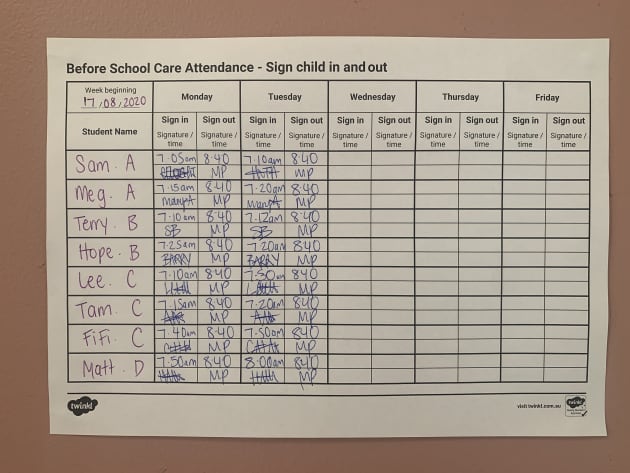 Before School Care Attendance - Sign child in and out
Week beginning
17/08/2020
Monday Tuesday Wednesday Thursday Friday
Student Name
Sign in Sign out Sign in Sign out Sign in Sign out Sign in Sign out Sign in Sign out
Signature / Signature / Signature / Signature / Signature / Signature / Signature / Signature / Signature / Signature /
time time time time time time time time time time
Sam. A 7.05am 8:40 7.10am 8:40
MP MP
Meg. A 7.15am 8:40 7.20am 8:40
MP MP
Terry. B 7.10am 8:40 7.12am 8:40
SB MP SB MP
Hope. B 7.25am 8:40 7.20am 8:40
BARRY MP BARRY MP
Lee. C 7.10am 8:40 7.30am 8:40
MP MP
Tam. C 7.15am 8:40 7.20am 8:40
MP MP
FiFi. C 7.40am 8:40 7.50am 8:40
MP MP
Matt. D 7.50am 8:40 8:00am 8:40
MP MP
twinkl visit twinkl.com.au twinkl